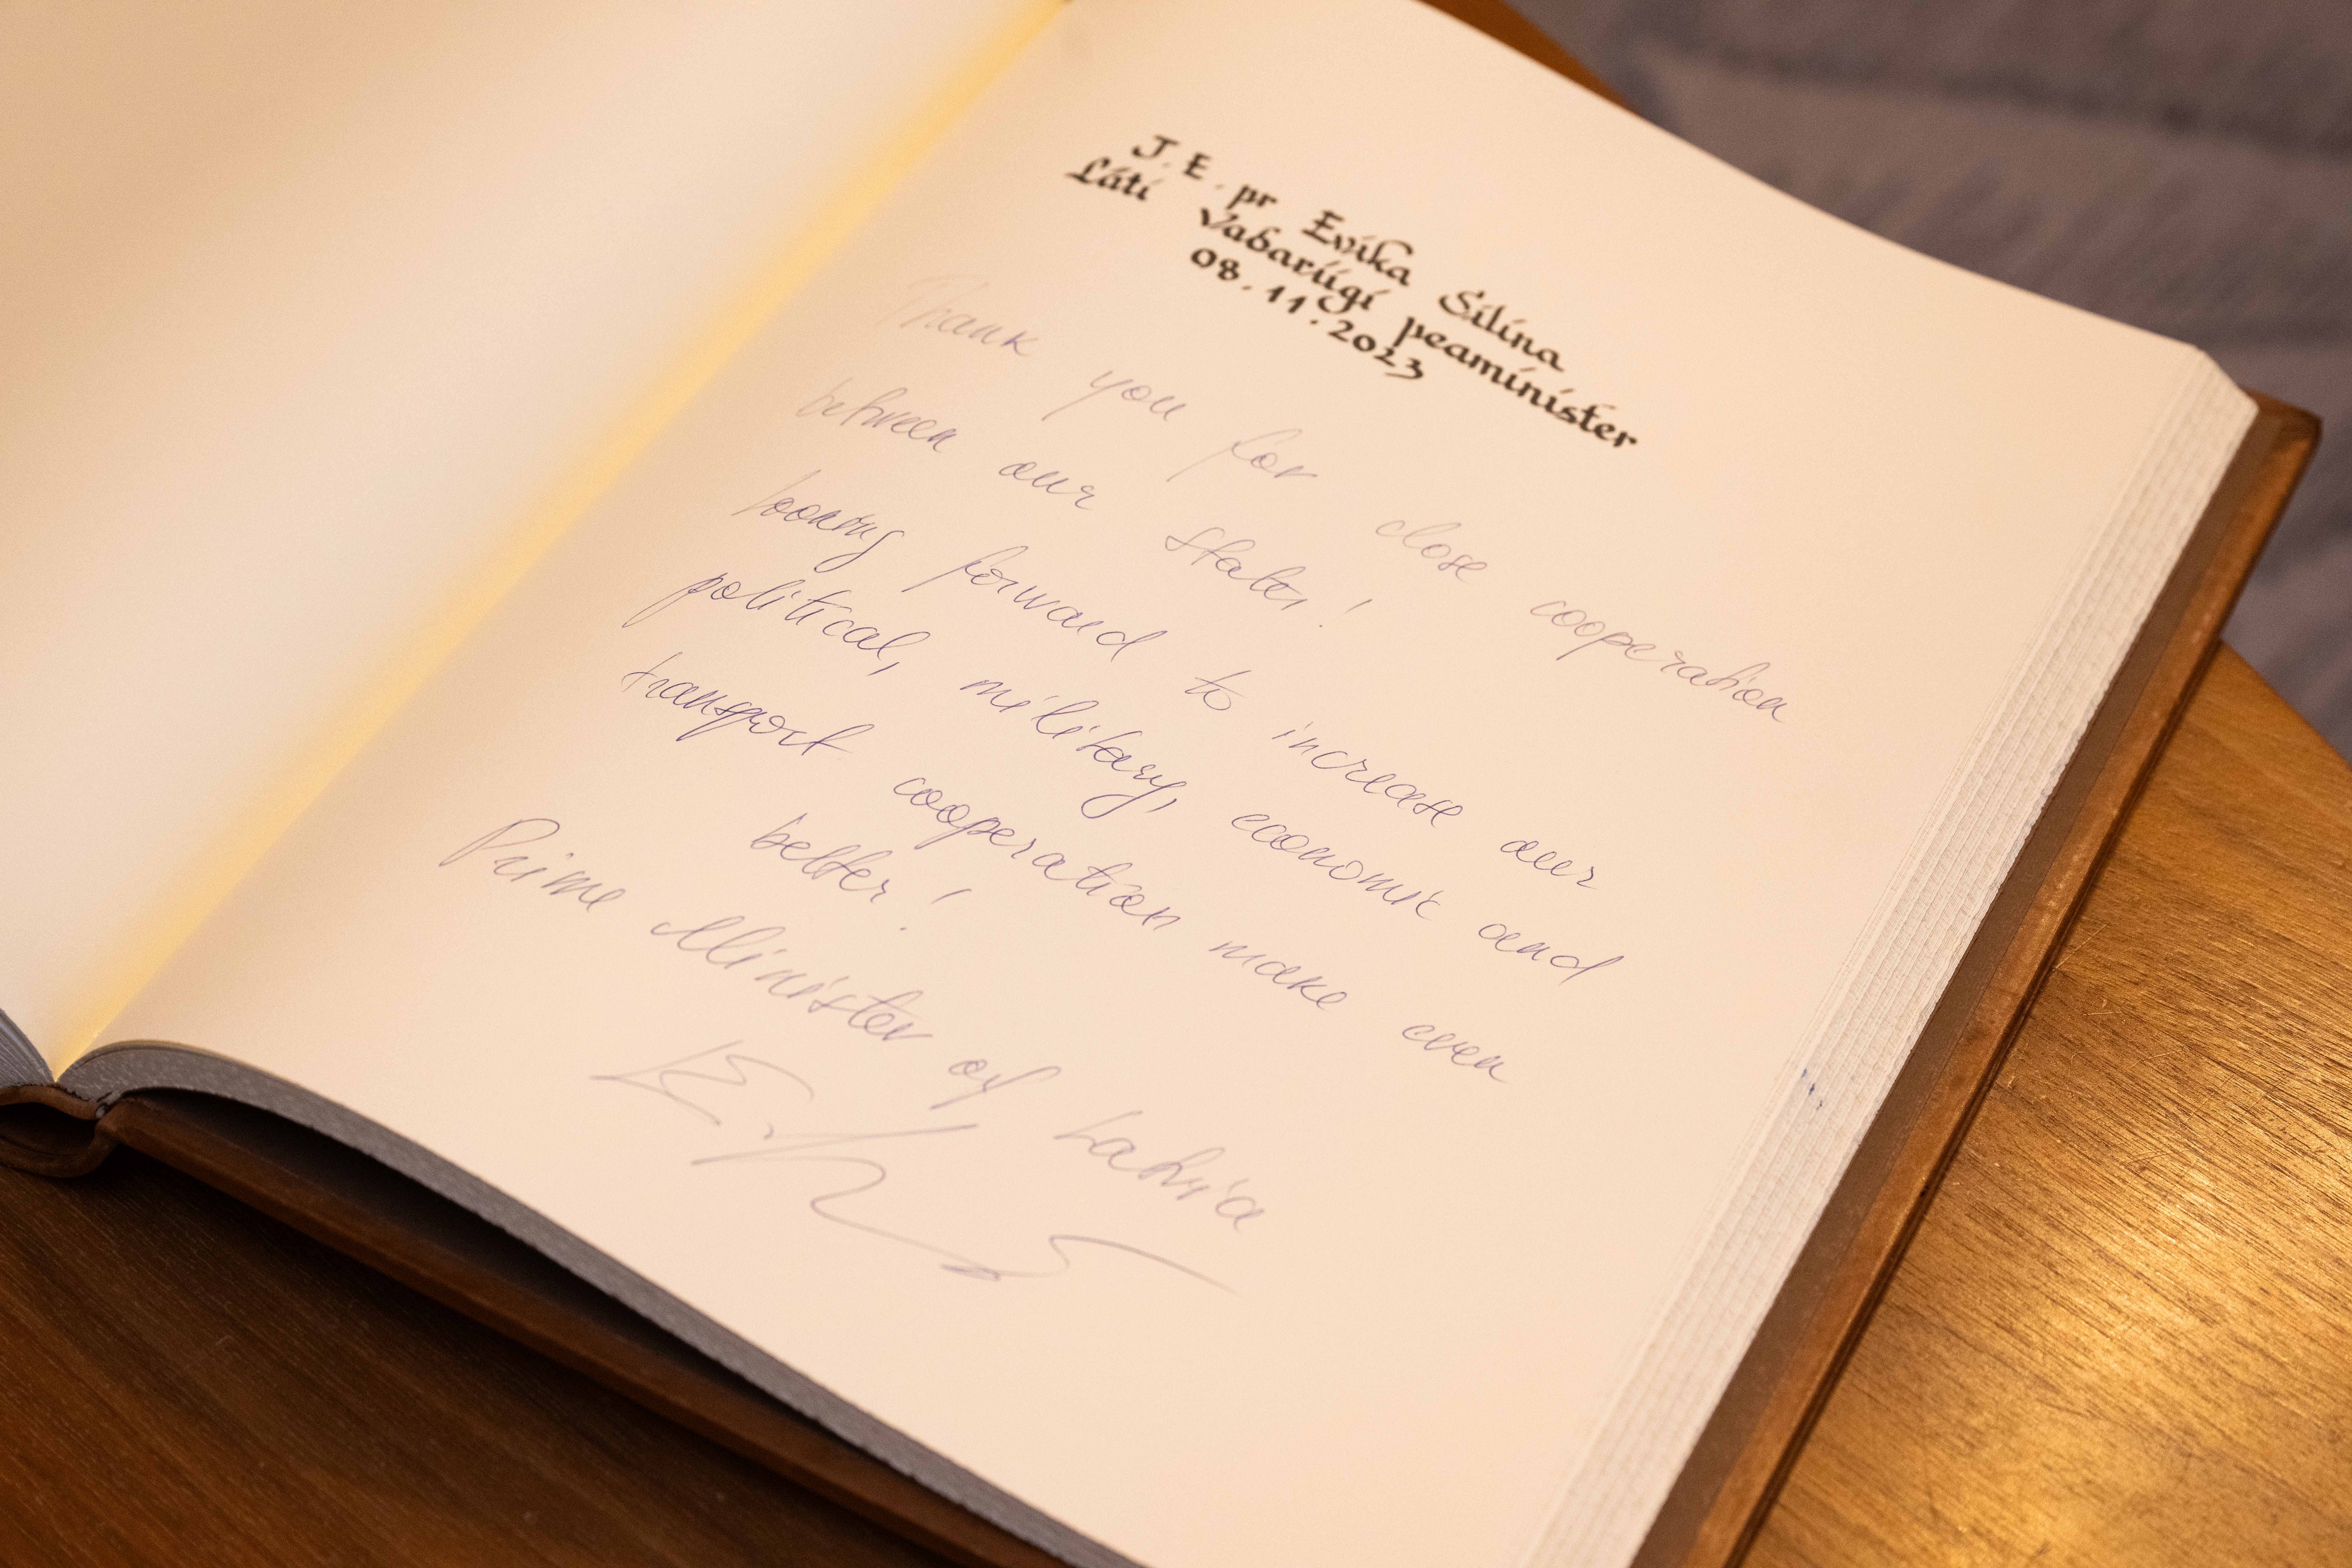 J. E. pr Evika Siliņa
Läti Vabariigi peaminister
08.11.2023
Thank you for close cooperation
between our states!
looking forward to increase our
political, military, economic and
transport cooperation make even
better!
Prime Minister of Latvia